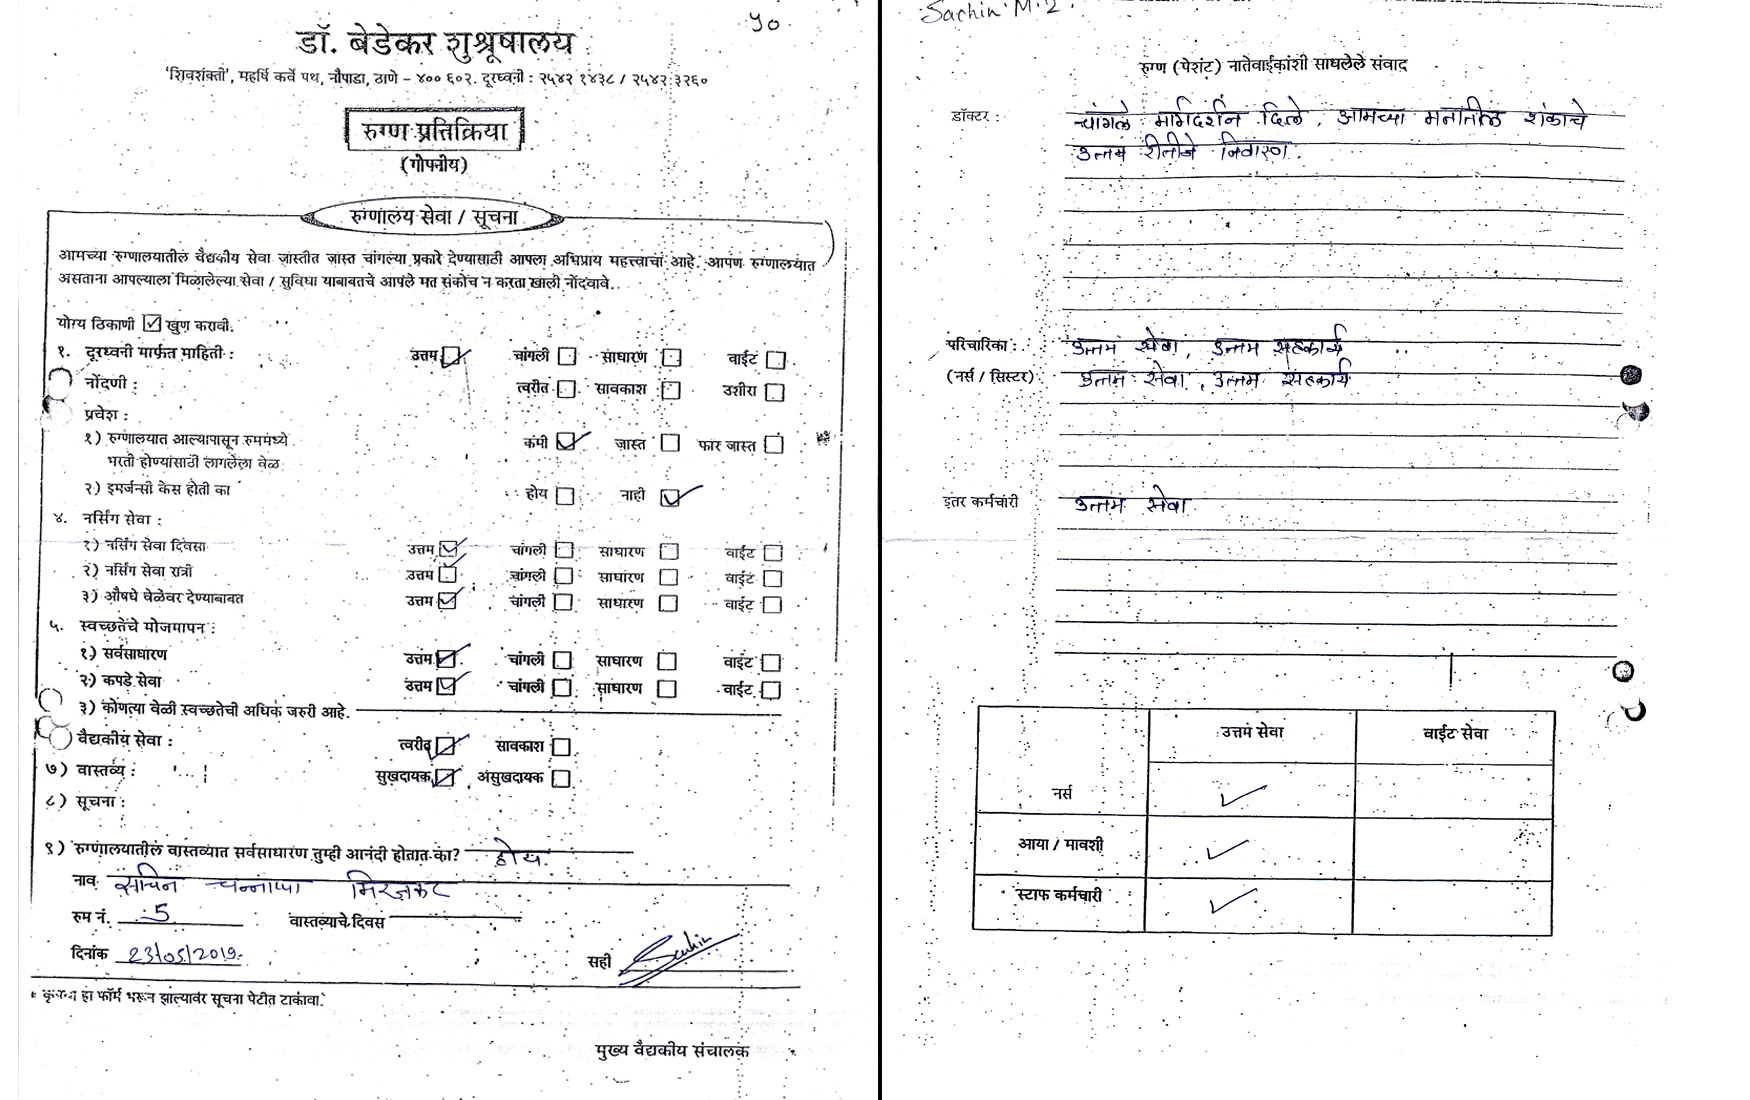 ५०
डॉ. बेडेकर शुश्रूषालय
'शिवशक्ती', महर्षि कर्वे पथ, नौपाडा, ठाणे – ४०० ६०२. दूरध्वनी : २५४२ १४३८ / २५४२ ३२६०
रुग्ण प्रतिक्रिया
(गोपनीय)
रुग्णालय सेवा / सूचना
आमच्या रुग्णालयातील वैद्यकीय सेवा जास्तीत जास्त चांगल्या प्रकारे देण्यासाठी आपला अभिप्राय महत्त्वाचा आहे. आपण रुग्णालयात
असताना आपल्याला मिळालेल्या सेवा / सुविधा याबाबतचे आपले मत संकोच न करता खाली नोंदवावे.
योग्य ठिकाणी ☑ खुण करावी.
१. दूरध्वनी मार्फत माहिती : उत्तम ☑ चांगली ☐ साधारण ☐ वाईट ☐
नोंदणी : त्वरीत ☐ सावकाश ☐ उशीरा ☐
प्रवेश :
१) रुग्णालयात आल्यापासून रुममध्ये कमी ☑ जास्त ☐ फार जास्त ☐
भरती होण्यासाठी लागलेला वेळ
२) इमर्जन्सी केस होती का होय ☐ नाही ☑
४. नर्सिंग सेवा :
१) नर्सिंग सेवा दिवसा उत्तम ☑ चांगली ☐ साधारण ☐ वाईट ☐
२) नर्सिंग सेवा रात्री उत्तम ☑ चांगली ☐ साधारण ☐ वाईट ☐
३) औषधे वेळेवर देण्याबाबत उत्तम ☑ चांगली ☐ साधारण ☐ वाईट ☐
५. स्वच्छतेचे मोजमापन :
१) सर्वसाधारण उत्तम ☑ चांगली ☐ साधारण ☐ वाईट ☐
२) कपडे सेवा उत्तम ☑ चांगली ☐ साधारण ☐ वाईट ☐
३) कोणत्या वेळी स्वच्छतेची अधिक जरुरी आहे.
वैद्यकीय सेवा : त्वरीत ☑ सावकाश ☐
७) वास्तव्य : सुखदायक ☑ असुखदायक ☐
८) सूचना :
९) रुग्णालयातील वास्तव्यात सर्वसाधारण तुम्ही आनंदी होतात का? होय.
नाव सचिन चन्नाप्पा मिरजकर
रुम नं. 5 वास्तव्याचे दिवस
दिनांक 23/05/2019 सही Sachin
* कृपया हा फॉर्म भरून झाल्यावर सूचना पेटीत टाकावा.
मुख्य वैद्यकीय संचालक
Sachin M. 2.
रुग्ण (पेशंट) नातेवाईकांशी साधलेले संवाद
डॉक्टर : चांगले मार्गदर्शन दिले, आमच्या मनातील शंकाचे
उत्तम रीतीने निवारण.
परिचारिका : उत्तम सेवा, उत्तम सहकार्य
(नर्स / सिस्टर) उत्तम सेवा, उत्तम सहकार्य
इतर कर्मचारी उत्तम सेवा
उत्तम सेवा वाईट सेवा
नर्स ✓
आया / मावशी ✓
स्टाफ कर्मचारी ✓